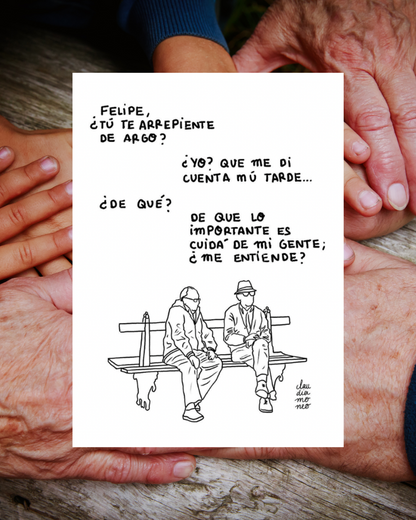 FELIPE,
¿TÚ TE ARREPIENTE
DE ARGO?
¿YO? QUE ME DI
CUENTA MÚ TARDE...
¿DE QUÉ?
DE QUE LO
IMPORTANTE ES
CUIDÁ DE MI GENTE;
¿ME ENTIENDE?
clau
dia
mo
neo